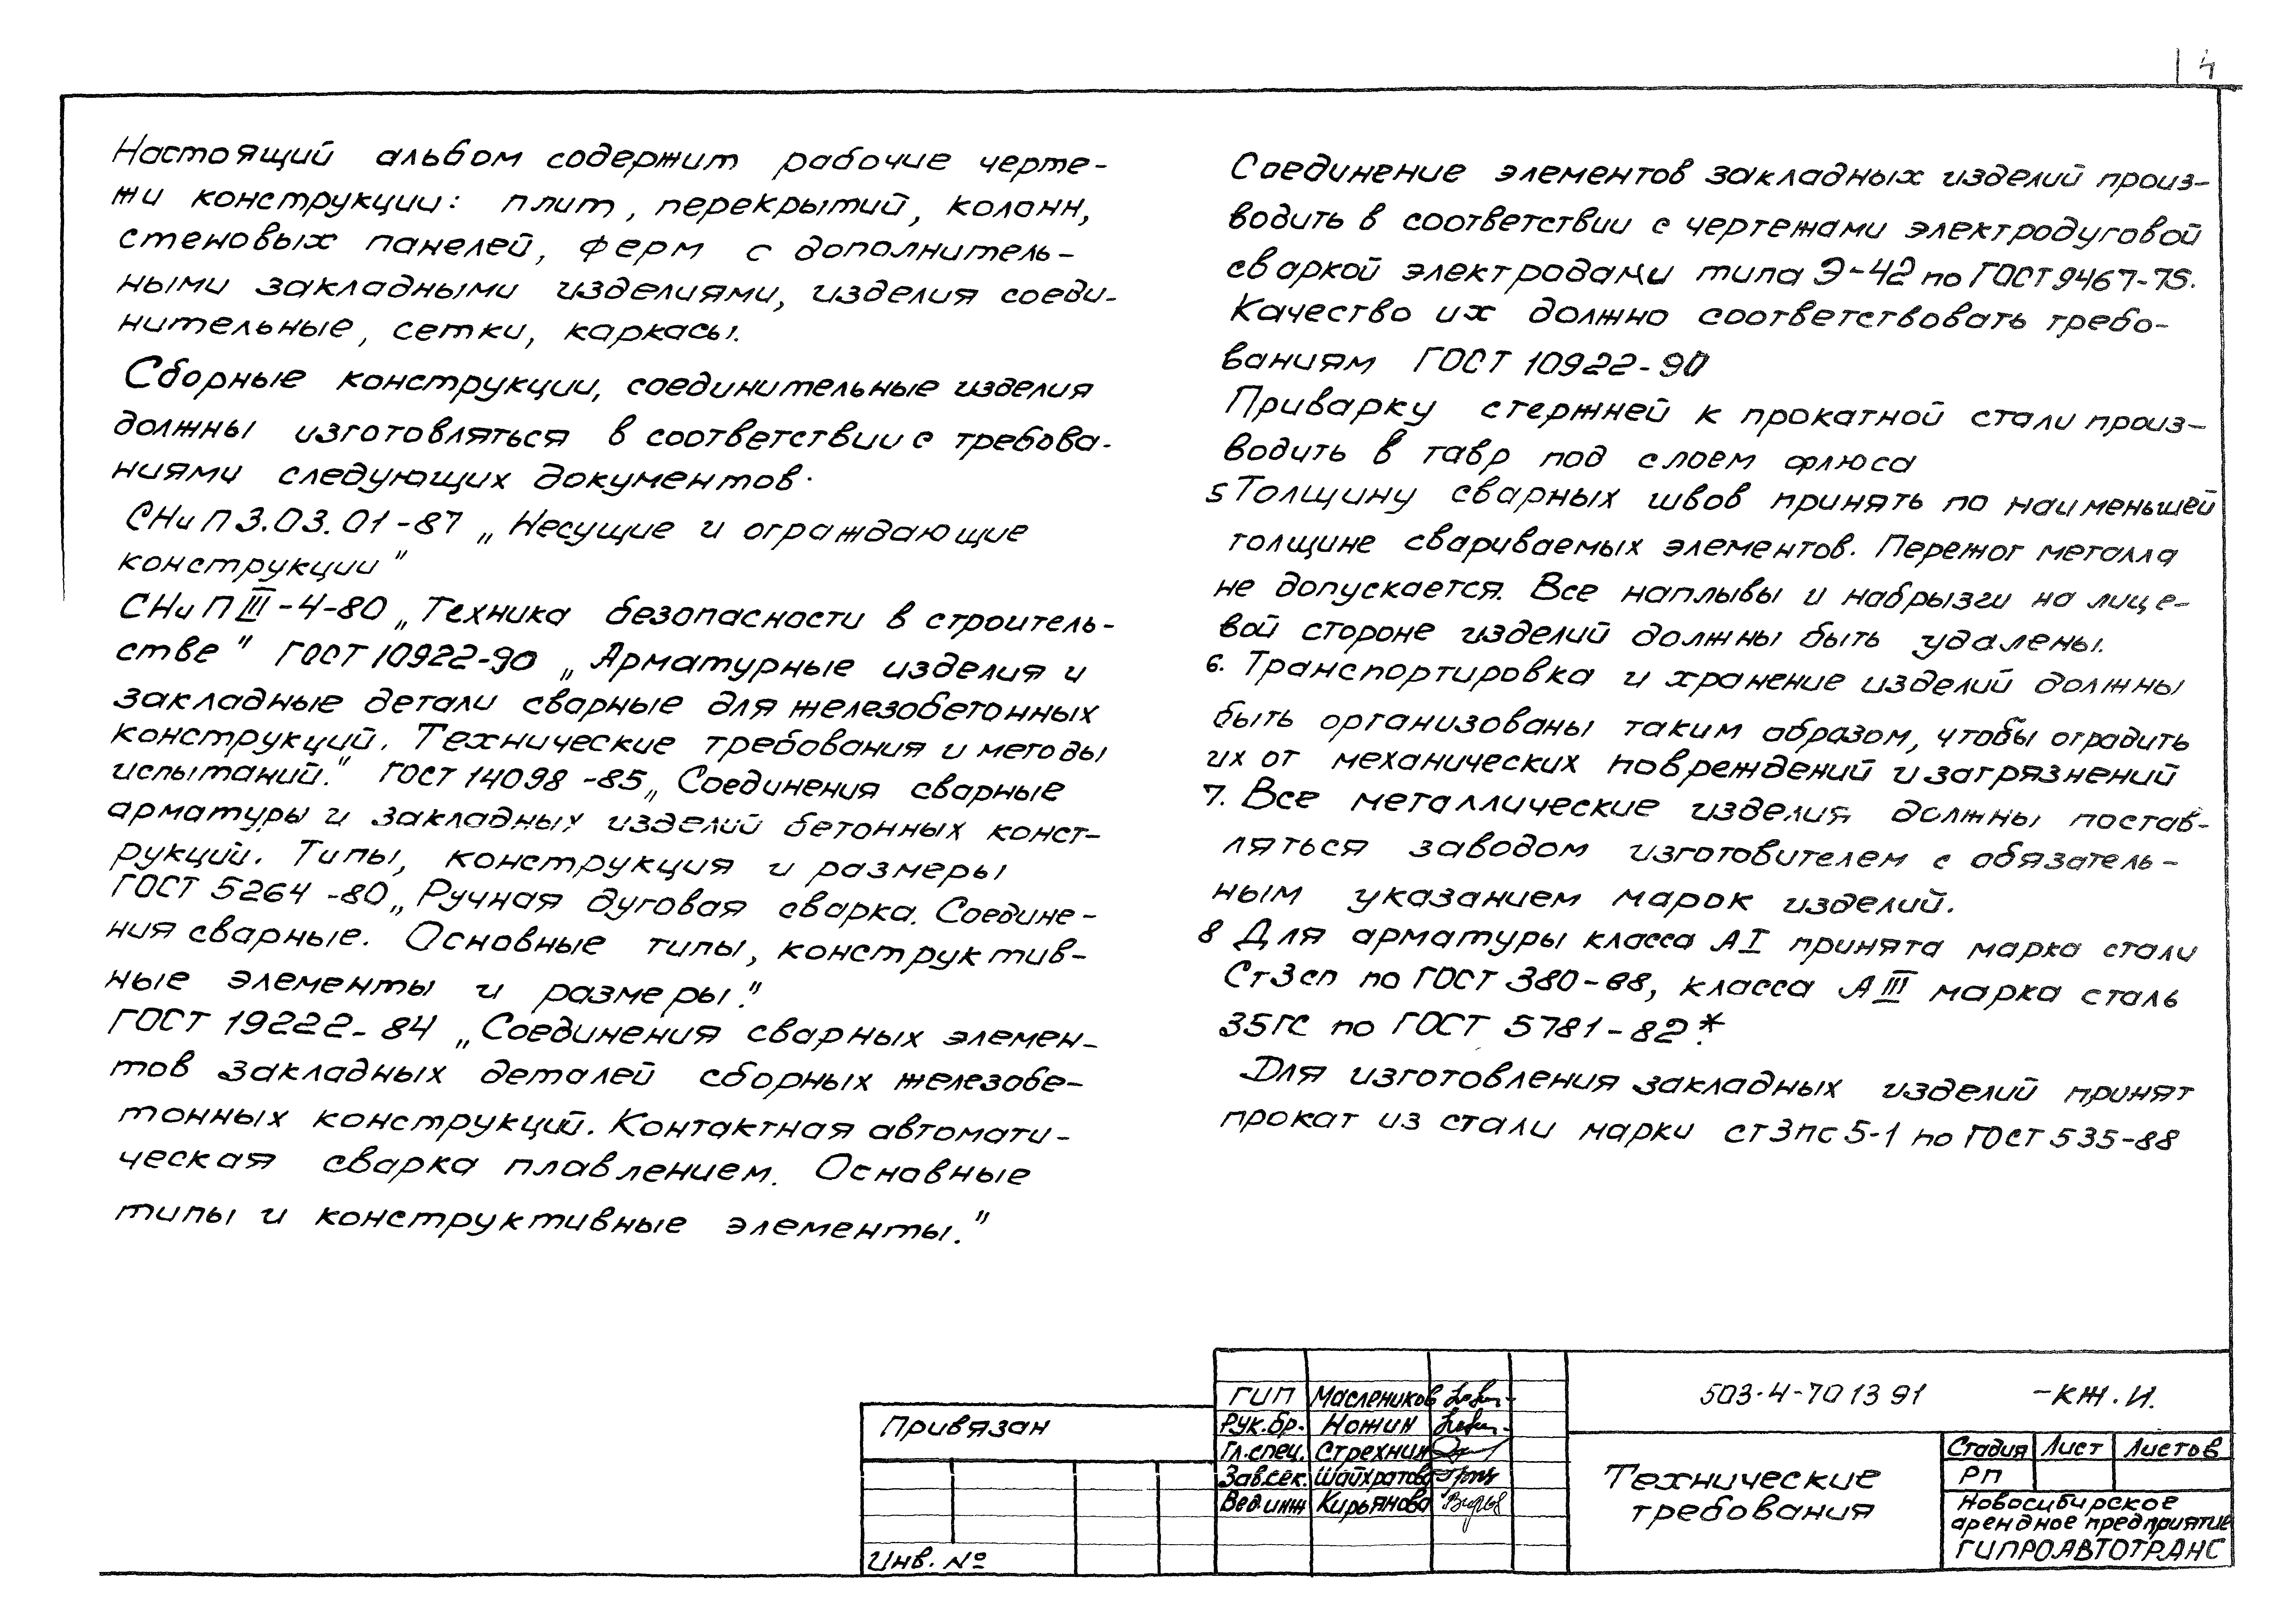 4
Настоящий альбом содержит рабочие черте-
жи конструкции: плит, перекрытий, колонн,
стеновых панелей, ферм с дополнитель-
ными закладными изделиями, изделия соеди-
нительные, сетки, каркасы.
Сборные конструкции, соединительные изделия
должны изготовляться в соответствии с требова-
ниями следующих документов.
СНиП 3.03.01-87 „Несущие и ограждающие
конструкции"
СНиП III-4-80 „Техника безопасности в строитель-
стве" ГОСТ 10922-90 „Арматурные изделия и
закладные детали сварные для железобетонных
конструкций. Технические требования и методы
испытаний." ГОСТ 14098-85 „Соединения сварные
арматуры и закладных изделий бетонных конст-
рукций. Типы, конструкция и размеры
ГОСТ 5264-80 „Ручная дуговая сварка. Соедине-
ния сварные. Основные типы, конструктив-
ные элементы и размеры."
ГОСТ 19222-84 „Соединения сварных элемен-
тов закладных деталей сборных железобе-
тонных конструкций. Контактная автомати-
ческая сварка плавлением. Основные
типы и конструктивные элементы."
Соединение элементов закладных изделий произ-
водить в соответствии с чертежами электродуговой
сваркой электродами типа Э-42 по ГОСТ 9467-75.
Качество их должно соответствовать требо-
ваниям ГОСТ 10922-90
Приварку стержней к прокатной стали произ-
водить в тавр под слоем флюса
5 Толщину сварных швов принять по наименьшей
толщине свариваемых элементов. Пережог металла
не допускается. Все наплывы и набрызги на лице-
вой стороне изделий должны быть удалены.
6. Транспортировка и хранение изделий должны
быть организованы таким образом, чтобы оградить
их от механических повреждений и загрязнений
7. Все металлические изделия должны постав-
ляться заводом изготовителем с обязатель-
ным указанием марок изделий.
8 Для арматуры класса АI принята марка стали
Ст3сп по ГОСТ 380-88, класса АIII марка сталь
35ГС по ГОСТ 5781-82*.
Для изготовления закладных изделий принят
прокат из стали марки ст3пс5-1 по ГОСТ 535-88
Привязан
Инв. №
ГИП Маслеников
Рук.бр. Ножин
Гл.спец. Стрехнин
Зав.сек. Шайхратова
Вед.инж Кирьянова
503-4-70 13 91 -КЖ.И.
Технические
требования
Стадия Лист Листов
РП
Новосибирское
арендное предприятие
ГИПРОАВТОТРАНС